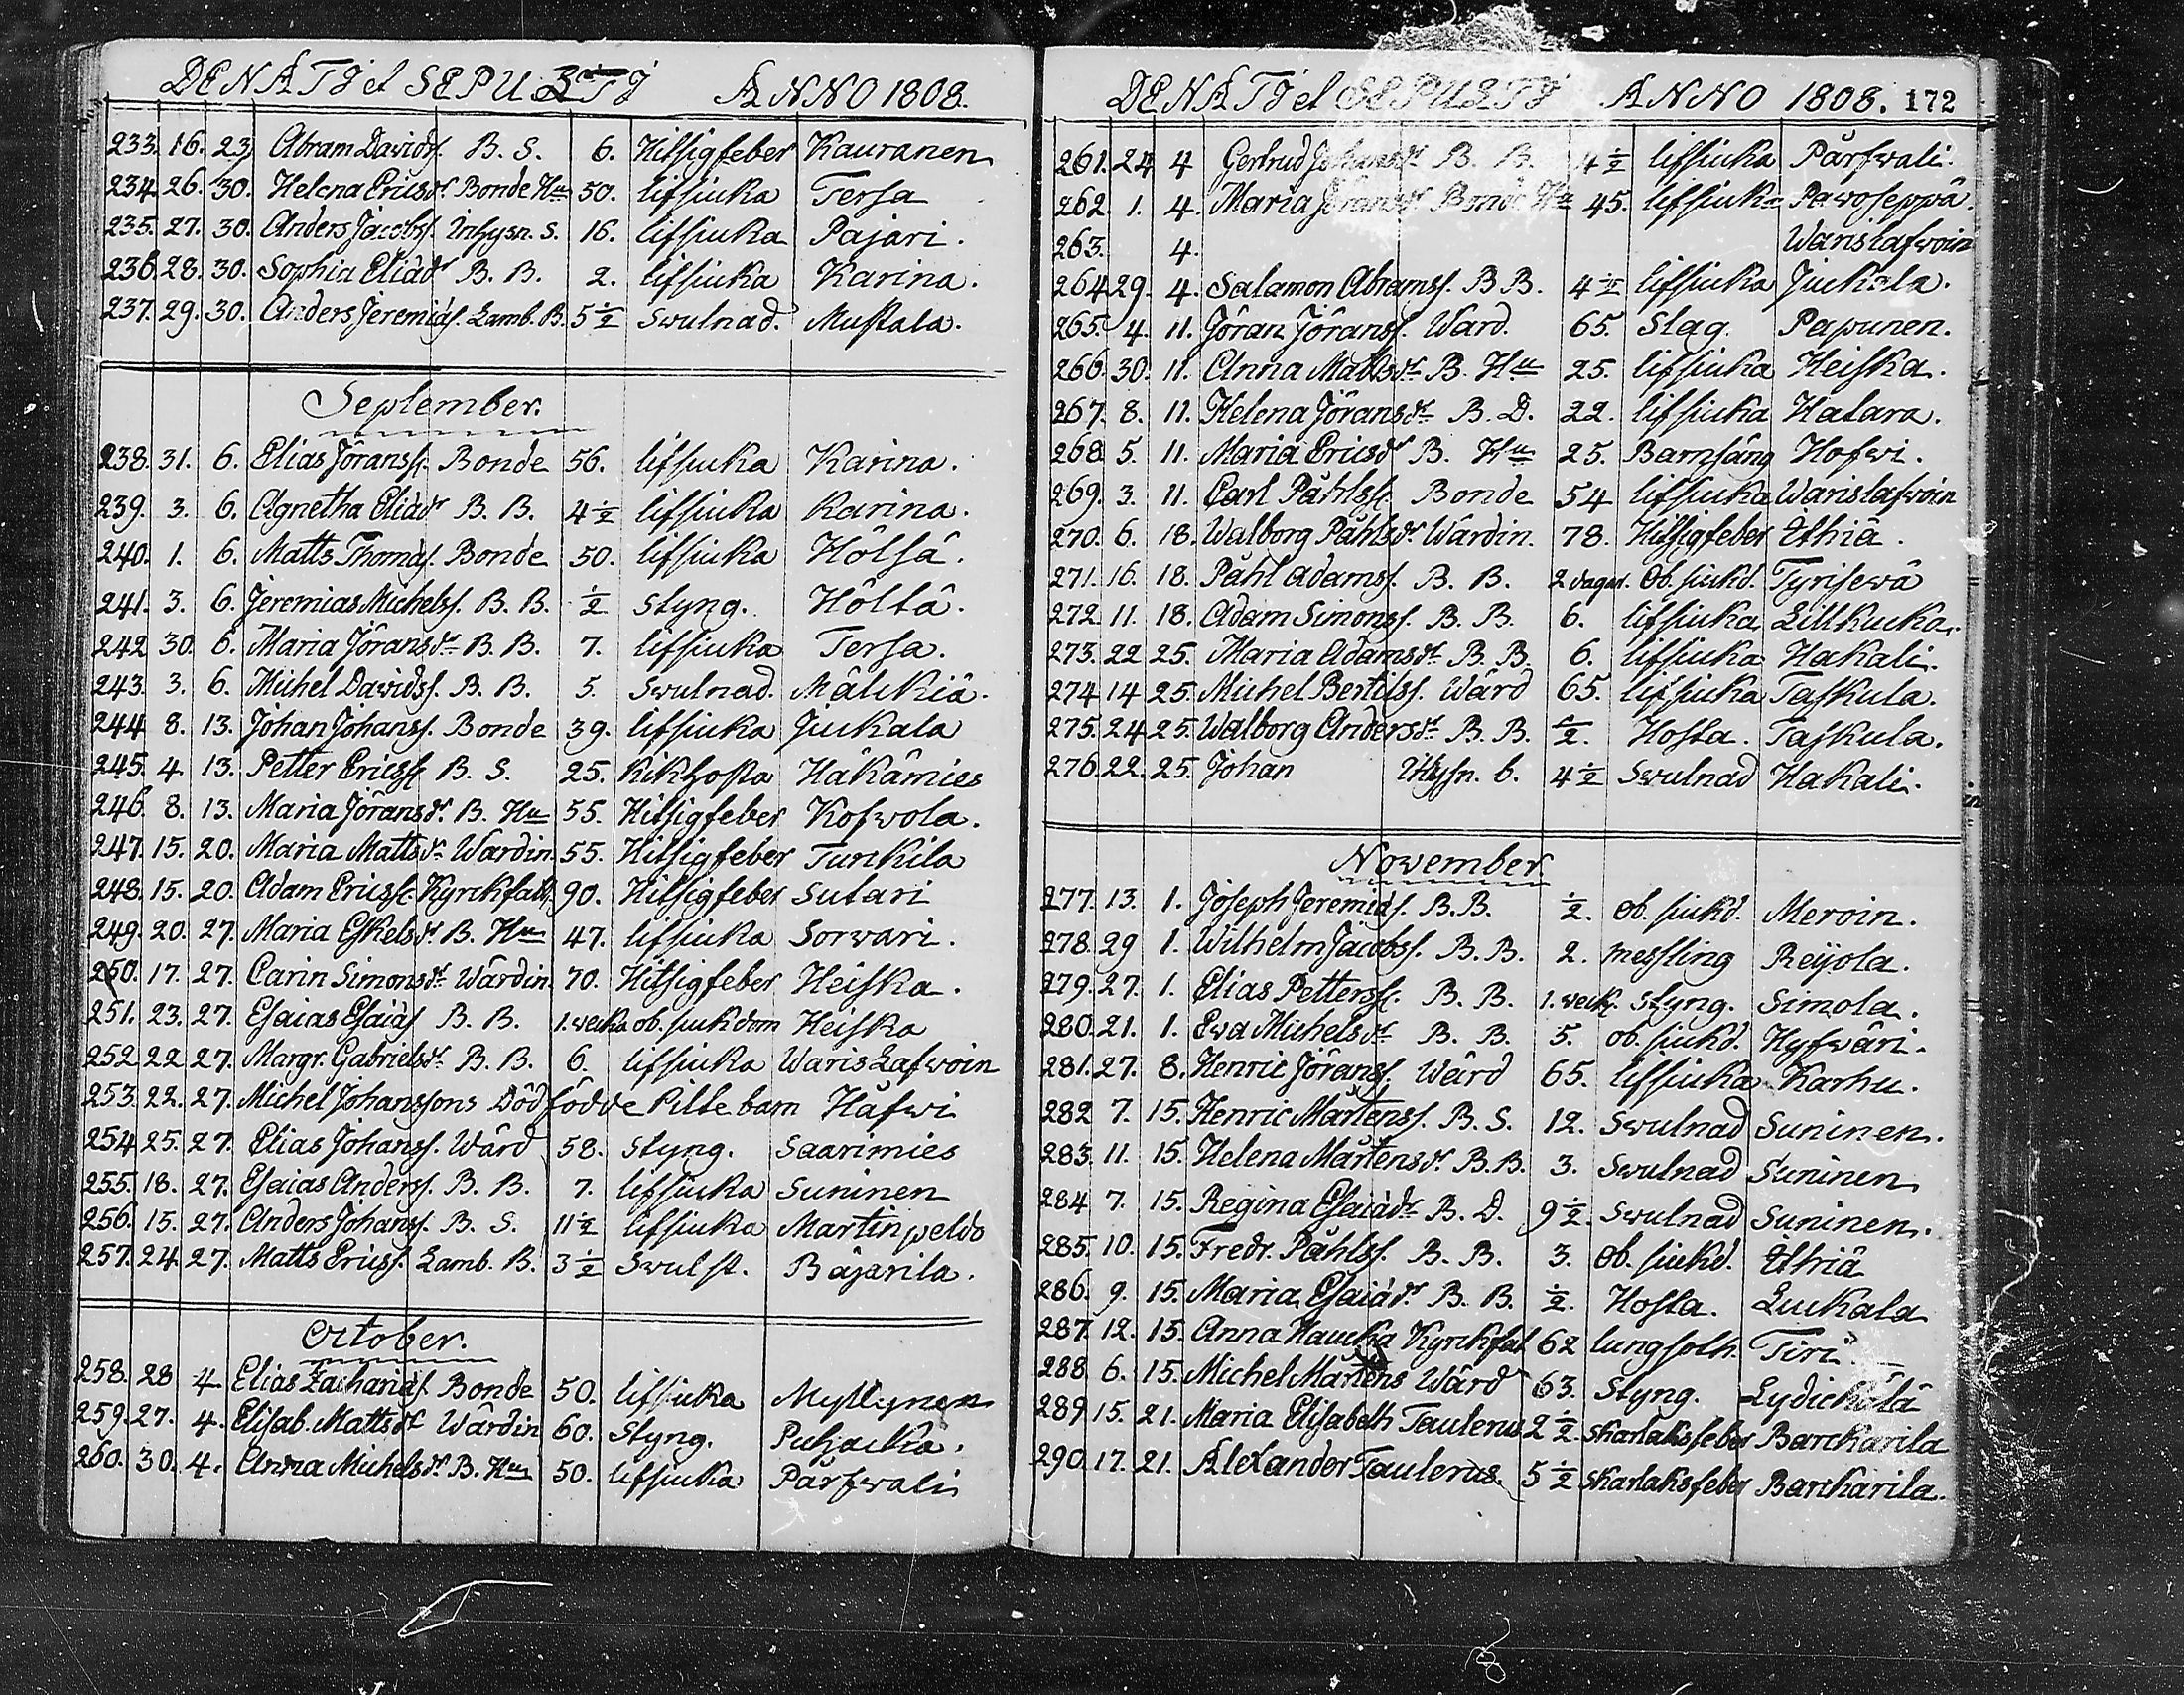 DENATJ et SEPULTJ ANNO 1808.
233. 16. 23. Abram Davids. B. S. 6. Hitsigfeber Kauranen
234. 26. 30. Helena Ericsdr Bonde Hu 50. lifsiuka Tersa
235. 27. 30. Anders Jacobss. Inhysn. S. 16. lifsiuka Pajari.
236. 28. 30. Sophia Eliädr B. B. 2. lifsiuka Karina.
237. 29. 30. Anders Jeremiäs. Lamb. B. 5 1/2 Swulnad. Mustala.
September.
238. 31. 6. Elias Jöranss. Bonde 56. lifsiuka Karina.
239. 3. 6. Agnetha Eliädr B. B. 4 1/2 lifsiuka Karina.
240. 1. 6. Matts Thomas. Bonde 50. lifsiuka Hölsä.
241. 3. 6. Jeremias Michelss. B. B. 1/2 Styng. Höltä.
242 30. 6. Maria Jöransdr B. B. 7. lifsiuka Tersa.
243. 3. 6. Michel Davidss. B. B. 5. Swulnad. Mälckiä.
244 8. 13. Johan Johanss. Bonde 39. lifsiuka Juckala
245. 4. 13. Petter Ericss. B. S. 25. Kikhosta Häkämies
246. 8. 13. Maria Jöransdr. B. Hu 55. Hitsigfeber Kofwola.
247. 15. 20. Maria Mattsdr Wärdin. 55. Hitsigfeber Turckila
248. 15. 20. Adam Ericss. Kyrckfatt. 90. Hitsigfeber Sutari
249. 20. 27. Maria Eskelsdr B. Hu 47. lifsiuka Sorwari.
250. 17. 27. Carin Simonsdr Wärdin. 70. Hitsigfeber Heiska.
251. 23. 27. Esaias Esaiäs B. B. 1. wecka ob. siukdom Heiska
252 22 27. Margr. Gabrielsdr. B. B. 6. lifsiuka Waris Lafwoin
253. 22. 27. Michel Johanssons Död födde Pilte barn Häfwi
254 25. 27. Elias Johanss. Wärd 58. Styng. Saarimies
255. 18. 27. Esaias Anderss. B. B. 7. lifsiuka Suninen
256. 15. 27. Anders Johanss. B. S. 11 1/2 lifsiuka Martinpeldo
257. 24. 27. Matts Ericss. Lamb. B. 3 1/2 Swulst. Bäjarila.
October.
258. 28 4 Elias Zachariäs. Bonde 50. lifsiuka Myllynen
259. 27. 4. Elisab. Mattsdr Wärdin 60. Styng. Puhjacka.
260. 30. 4. Anna Michelsdr B. Hu 50. lifsiuka Pärfwali
DENATJ et SEPULTJ ANNO 1808. 172
261. 24 4 Gertrud Johansdr B. B. 4 1/2 lifsiuka Pärfwali.
262. 1. 4. Maria Jöransdr Bonde Hu 45. lifsiuka Pawoseppä.
263. 4. Warislafwoin
264 29. 4. Salamon Abramss. B B. 4 1/2 lifsiuka Juckala.
265. 4. 11. Jöran Jöranss. Wärd. 65. Slag. Papunen.
266. 30. 11. Anna Mattsdr B. Hu 25. lifsiuka Heiska.
267. 8. 11. Helena Jöransdr B. D. 22. lifsiuka Hatara.
268 5. 11. Maria Ericsdr B. Hu 25. Barnsäng Hofwi.
269. 3. 11. Carl Påhlss. Bonde 54 lifsiuka Warislafwoin
270. 6. 18. Walborg Påhlsdr Wärdin. 78. Hitsigfeber Ethiä.
271. 16. 18. Påhl Adamss. B. B. 2 dagar. Ob. siukd. Tyrisewä
272. 11. 18. Adam Simonss. B. B. 6. lifsiuka Lillkucka.
273. 22 25. Maria Adamsdr B. B. 6. lifsiuka Hakali.
274 14 25. Michel Bertilss. Wärd 65. lifsiuka Taskula.
275. 24 25. Walborg Andersdr B. B. 1/2. Hosta. Taskula.
276 22. 25. Johan Inhysn. b. 4 1/2 Swulnad Hakali.
November
277. 13. 1. Joseph Jeremiäs. B. B. 1/2. ob. siukd. Meroin.
278. 29 1. Wilhelm Jacobss. B. B. 2. messling Reijola.
279. 27. 1. Elias Petterss. B. B. 1. weck. Styng. Simola.
280. 21. 1. Eva Michelsdr B. B. 5. ob. siukd. Hyfwäri.
281. 27. 8. Henric Jöranss. Wärd 65. lifsiuka Karhu.
282 7. 15. Henric Mårtenss. B. S. 12. Swulnad Suninen.
283. 11. 15. Helena Mårtensdr. B. B. 3. Swulnad Suninen
284 7. 15. Regina Esaiädr B. D. 9 1/2. Swulnad Suninen.
285. 10. 15. Fredr. Påhlss. B. B. 3. ob. siukd. Ethiä
286. 9. 15. Maria Esaiädr B. B. 1/2. Hosta. Luckala
287. 12. 15. Anna Haucka Kyrckfat 62 lungsoth. Tiri
288 6. 15. Michel Mårtens Wärd 63. Styng. Lydickälä
289 15. 21. Maria Elisabeth Taulerus 2 1/2. Skarlaksfeber Barckarila
290. 17. 21. Alexander Taulerus. 5 1/2 Skarlaksfeber Barckarila.